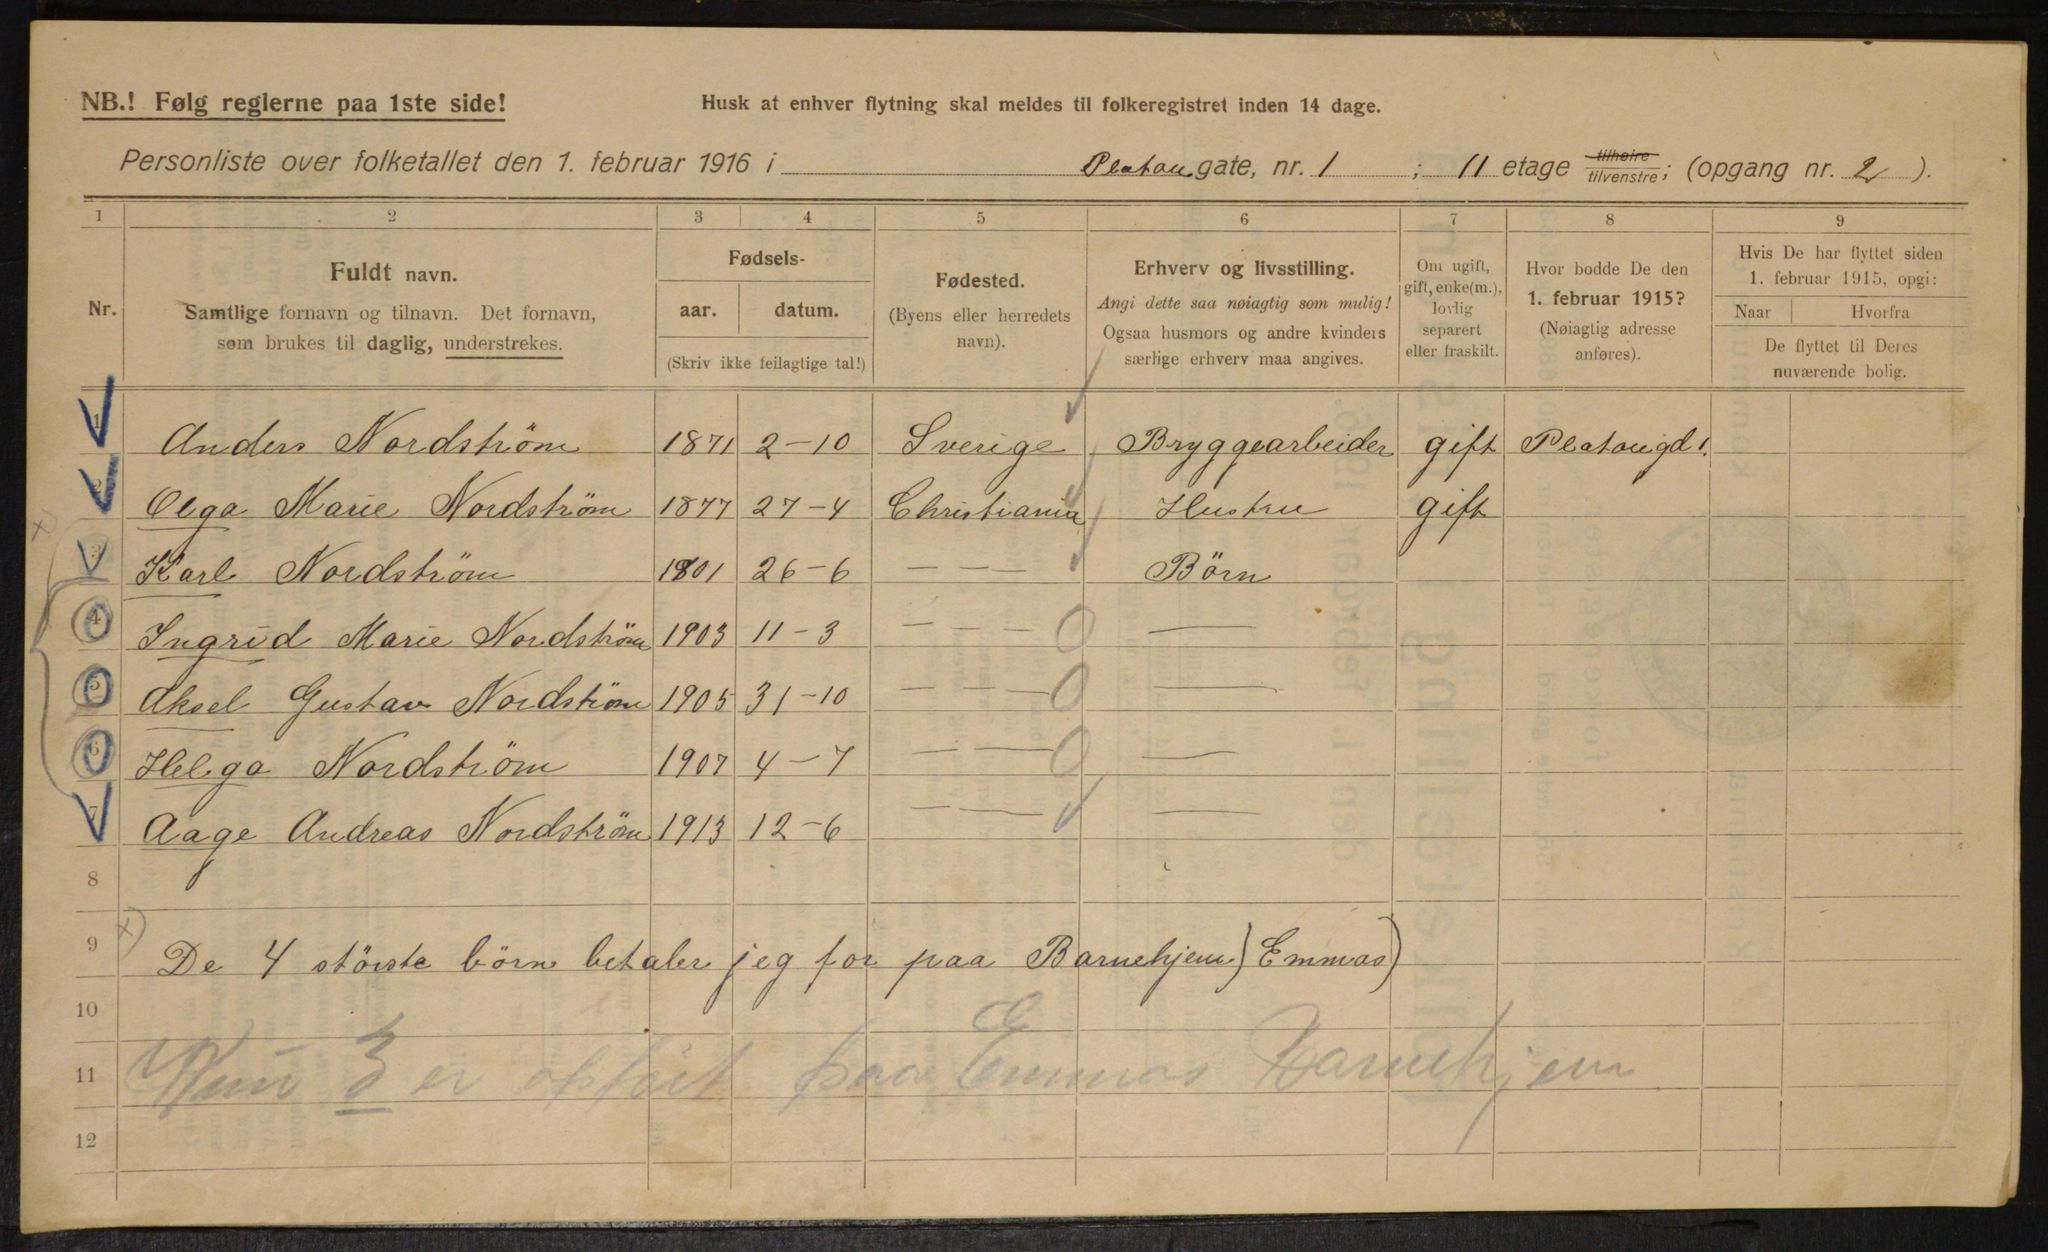 NB.! Følg reglerne paa 1ste side!
Husk at enhver flytning skal meldes til folkeregistret inden 14 dage.
Personliste over folketallet den 1. februar 1916 i Platou gate, nr. 1 ; 11 etage tilhøire tilvenstre; (opgang nr. 2 ).
1 2 3 4 5 6 7 8 9
Nr.
Fuldt navn.
Samtlige fornavn og tilnavn. Det fornavn,
som brukes til daglig, understrekes.
Fødsels-
aar. datum.
(Skriv ikke feilagtige tal!)
Fødested.
(Byens eller herredets
navn).
Erhverv og livsstilling.
Angi dette saa nøiagtig som mulig!
Ogsaa husmors og andre kvinders
særlige erhverv maa angives.
Om ugift,
gift, enke(m.),
lovlig
separert
eller fraskilt.
Hvor bodde De den
1. februar 1915?
(Nøiagtig adresse
anføres).
Hvis De har flyttet siden
1. februar 1915, opgi:
Naar Hvorfra
De flyttet til Deres
nuværende bolig.
1 Anders Nordström 1871 2-10 Sverige Bryggearbeider gift Platougd 1.
2 Olga Marie Nordström 1877 27-4 Christiania Hustru gift
3 Karl Nordström 1801 26-6 — — — Börn
4 Ingrid Marie Nordström 1903 11-3 — — — 0 —
5 Aksel Gustav Nordström 1905 31-10 — — — 0 —
6 Helga Nordström 1907 4-7 — — 0 —
7 Aage Andreas Nordström 1913 12-6 — — —
8
x)
9 De 4 störste börn betaler jeg for paa Barnehjem) Emmas)
10
11 Kun 3 er opført paa Emmas Barnehjem
12